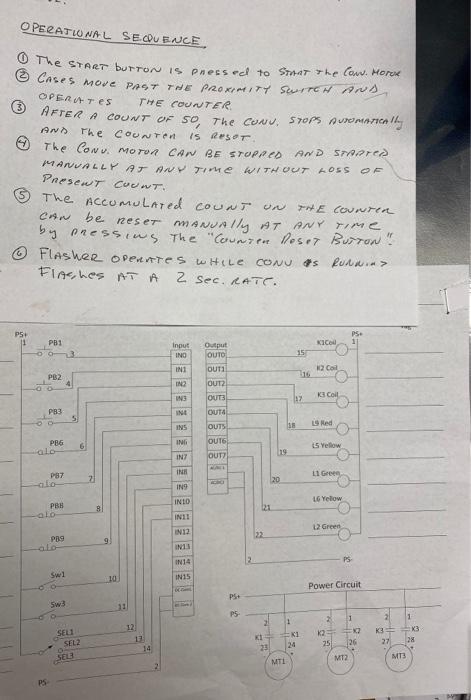 OPERATIONAL SEQUENCE
① The START button is pressed to START The Conv. Motor
② Cases move PAST THE PROXIMITY SWITCH AND
OPERATES THE COUNTER.
③ AFTER A COUNT OF 50, The CONV. STOPS AUTOMATICALLY
AND The COUNTER IS RESET.
④ The CONV. MOTOR CAN BE STOPPED AND STARTED
MANUALLY AT ANY TIME WITHOUT LOSS OF
PRESENT COUNT.
⑤ The ACCUMULATED COUNT ON THE COUNTER
CAN be RESET MANUALLY AT ANY TIME
by PRESSING The "COUNTER RESET BUTTON".
⑥ FLASHER OPERATES WHILE CONV IS RUNNING
FLASHES AT A 2 Sec. RATE.
PS+
1 PB1
3
PB2
4
PB3
5
PB6
6
PB7
7
PB8
8
PB9
9
Sw1
10
Sw3
11
SEL1 12
SEL2 13
SEL3 14
PS- 2
Input Output
IN0 OUT0
IN1 OUT1
IN2 OUT2
IN3 OUT3
IN4 OUT4
IN5 OUT5
IN6 OUT6
IN7 OUT7
IN8
IN9
IN10
IN11
IN12
IN13
IN14
IN15
PS+
15 K1Coil 1
16 K2 Coil
17 K3 Coil
18 L9 Red
19 L5 Yellow
20 L1 Green
21 L6 Yellow
22 L2 Green
2 PS-
Power Circuit
PS+
PS-
2 1 2 1 2 1
K1 K1 K2 K2 K3 K3
23 24 25 26 27 28
MT1 MT2 MT3